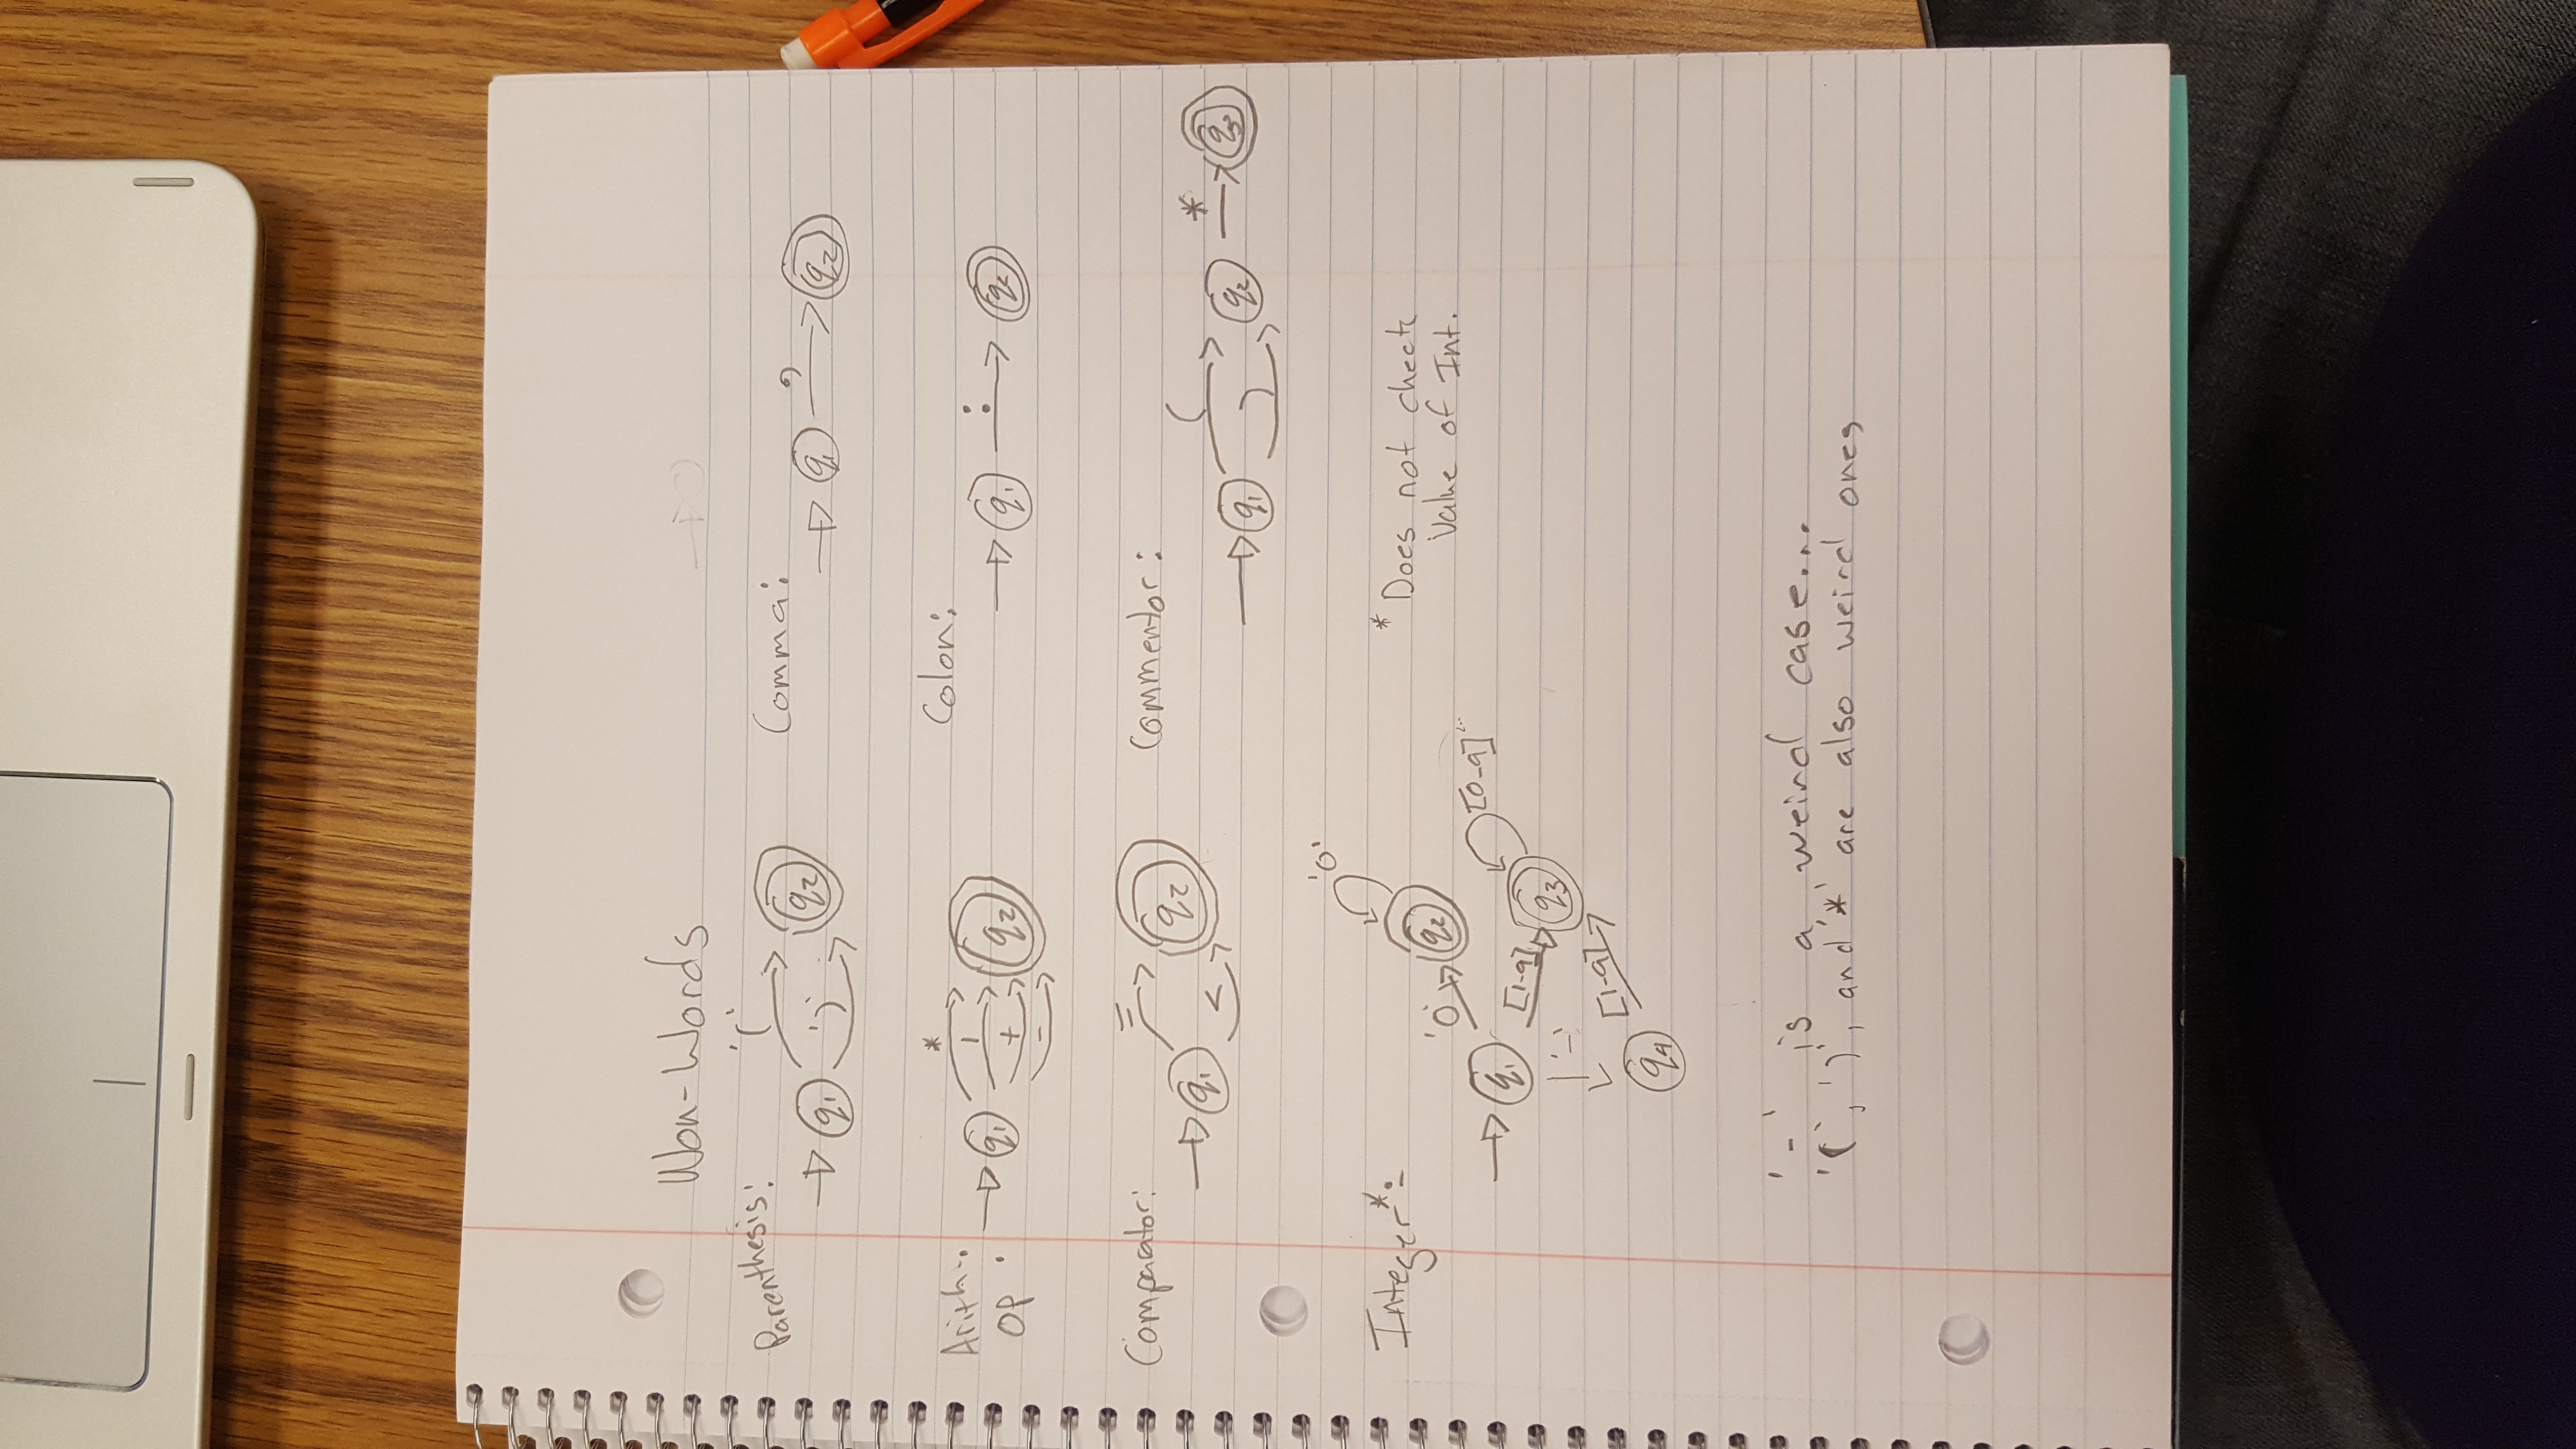 Non-Words
Parenthesis:
'(' 
q1 ')' q2
Comma:
,
q1 q2
Arith-
OP :
*
/
q1 + q2
-
Colon:
:
q1 q2
Comparator:
=
q1 < q2
Commentor:
( *
q1 ) q2 q3
Integer*:
'0'
'0' q2
q1 [1-9] q3 [0-9]
'-' [1-9]
q4
* Does not check
Value of Int.
'-' is a weird case...
'(', ')', and '*' are also weird ones